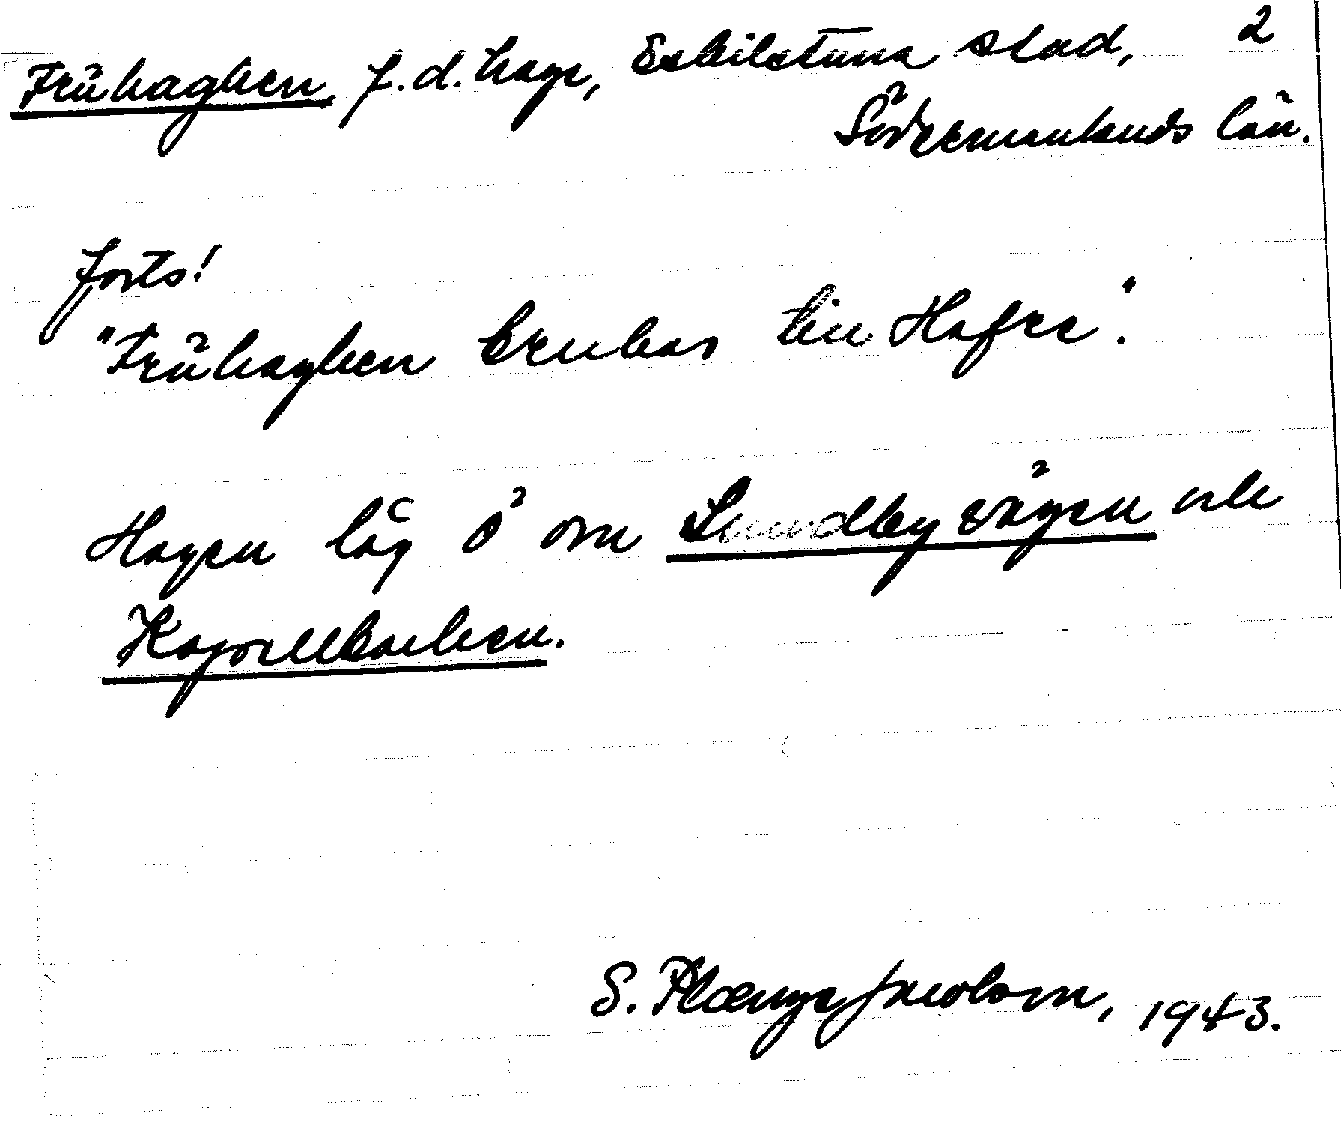 Frühaghen, f.d. hage, Eskilstuna stad, 2
Södermanlands län.
forts!
"Frühaghen brukas till Hafre".
Hagen låg ö om Lundbyvägen och
Kapellbacken.
S. Plænge Jacobson, 1943.